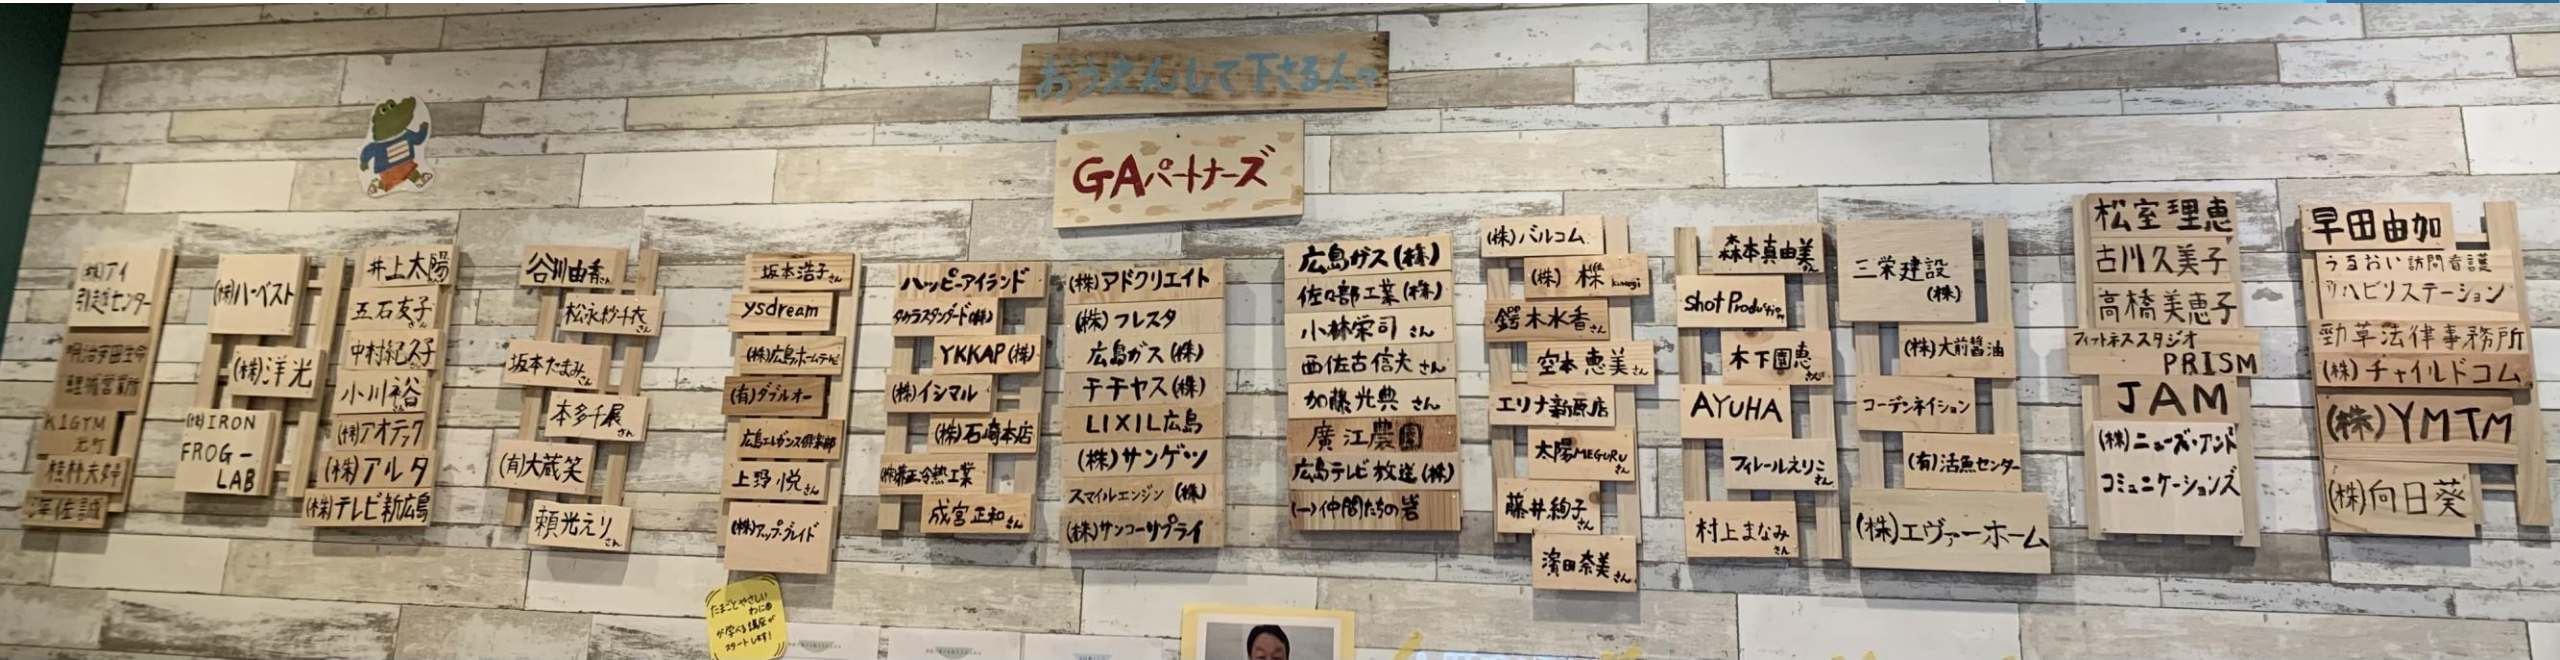 おうえんして下さる人々
GAパートナーズ
(株)アイ
引越センター
明治安田生命
営業所
KIGYM
光町
植村夫婦
(株)ハーベスト
(株)洋光
(株)IRON
FROG-
LAB
井上太陽
五石友子さん
中村紀久子
小川裕さん
(株)アオテック
(株)アルタ
(株)テレビ新広島
谷川由香さん
松永紗千衣さん
坂本たまみさん
本多千展さん
(有)大蔵笑
頼光えりさん
坂本浩子さん
ysdream
(株)広島ホームテレビ
(有)ダブルオー
広島エレガンス倶楽部
上野悦さん
(株)アップ・グレイド
ハッピーアイランド
タカラスタンダード(株)
YKKAP(株)
(株)イシマル
(株)石崎本店
(株)藤正冷熱工業
成宮正和さん
(株)アドクリエイト
(株)フレスタ
広島ガス(株)
チチヤス(株)
LIXIL広島
(株)サンゲツ
スマイルエンジン(株)
(株)サンコーサプライ
広島ガス(株)
佐々部工業(株)
小林栄司さん
西佐古信夫さん
加藤光典さん
廣江農園
広島テレビ放送(株)
(一)仲間たちの岩
(株)バルコム
(株)機
鍔木水香さん
空本恵美さん
エリナ新原店
太陽MEGURUさん
藤井絢子さん
濱田奈美さん
森本真由美さん
Shot Production
木下園恵さん
AYUHA
フィレールえりこさん
村上まなみさん
三栄建設
(株)
(株)大前醤油
コーデンネイション
(有)活魚センター
(株)エヴァーホーム
松室理恵
古川久美子
高橋美恵子
フィットネススタジオ
PRISM
JAM
(株)ニューズ・アンド
コミュニケーションズ
早田由加
うるおい訪問看護
リハビリステーション
勁草法律事務所
(株)チャイルドコム
(株)YMTM
(株)向日葵
たまごとやさしい
わに
が学べる講座が
スタートします!